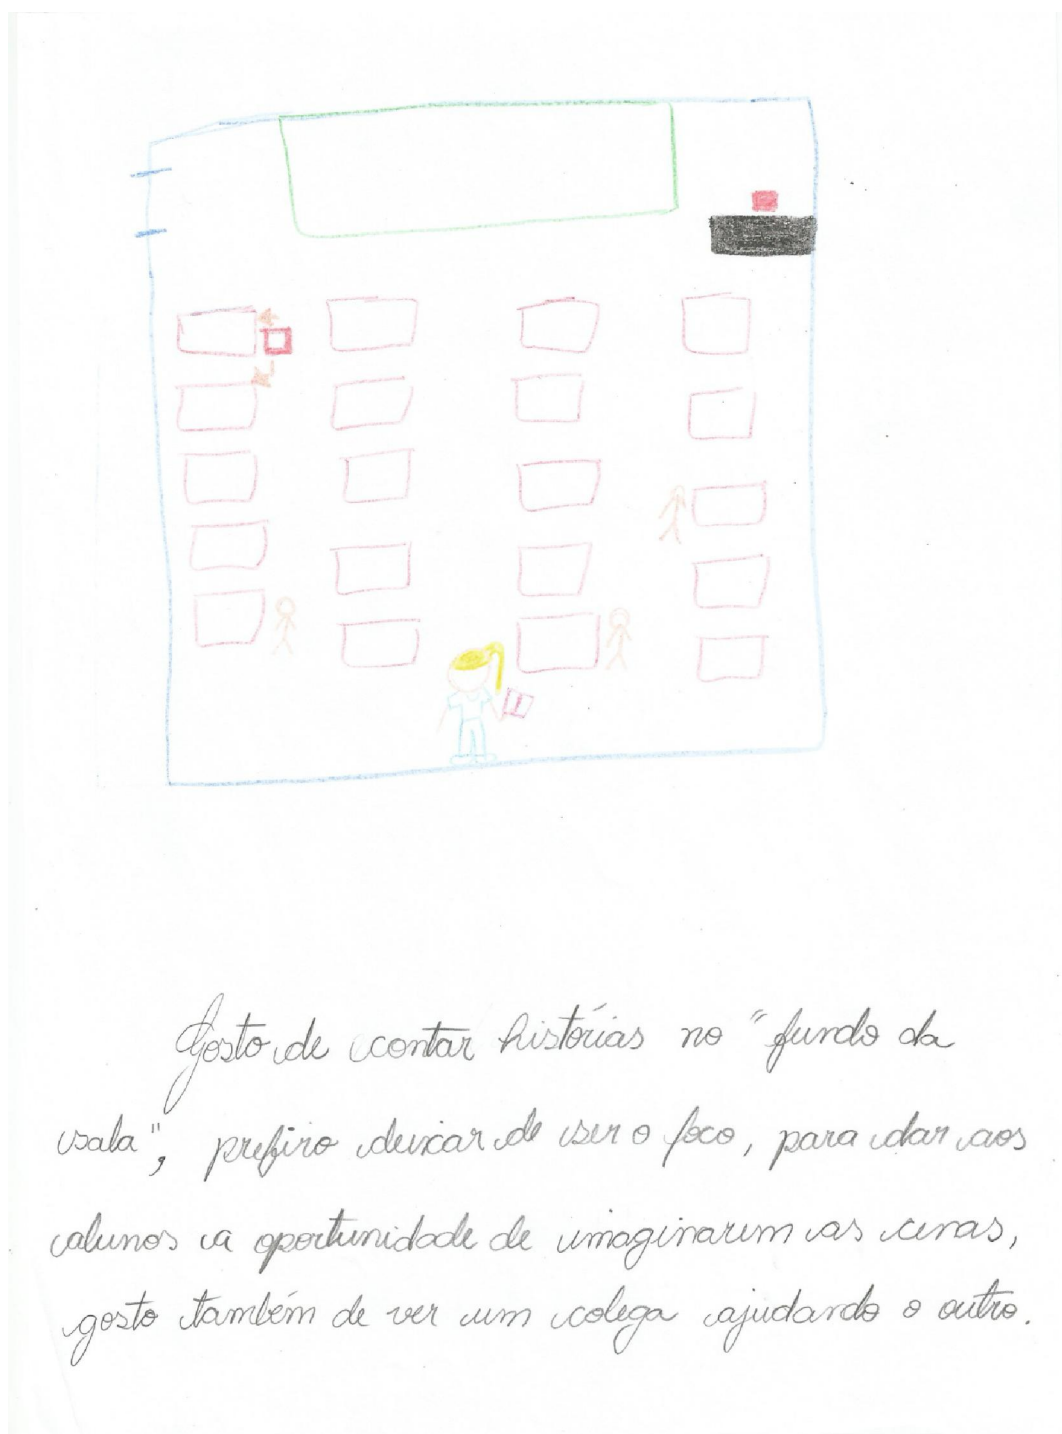 Gosto de contar histórias no "fundo da
sala", prefiro deixar de ser o foco, para dar aos
alunos a oportunidade de imaginarem as cenas,
gosto também de ver um colega ajudando o outro.